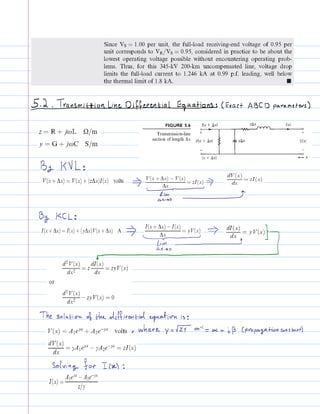 Since VS = 1.00 per unit, the full-load receiving-end voltage of 0.95 per
unit corresponds to VR/VS = 0.95, considered in practice to be about the
lowest operating voltage possible without encountering operating prob-
lems. Thus, for this 345-kV 200-km uncompensated line, voltage drop
limits the full-load current to 1.246 kA at 0.99 p.f. leading, well below
the thermal limit of 1.8 kA. ■
5.2. Transmittion Line Differential Equations (Exact ABCD parameters)
z = R + jωL Ω/m
y = G + jωC S/m
FIGURE 5.6
Transmission-line
section of length Δx
I(x + Δx) zΔx I(x)
V(x + Δx) yΔx V(x)
(x + Δx) x
By KVL:
V(x + Δx) = V(x) + (zΔx)I(x) volts ⇒ V(x + Δx) − V(x) / Δx = zI(x) ⇒ dV(x)/dx = zI(x)
lim
Δx→0
By KCL:
I(x + Δx) = I(x) + (yΔx)V(x + Δx) A ⇒ I(x + Δx) − I(x) / Δx = yV(x) ⇒ dI(x)/dx = yV(x)
lim
Δx→0
d²V(x)/dx² = z dI(x)/dx = zyV(x)
or
d²V(x)/dx² − zyV(x) = 0
The solution of the differential equation is:
V(x) = A₁e^γx + A₂e^−γx volts, where γ = √zy m⁻¹ = α + jβ (propagation constant)
dV(x)/dx = γA₁e^γx − γA₂e^−γx = zI(x)
Solving for I(x):
I(x) = A₁e^γx − A₂e^−γx / z/γ